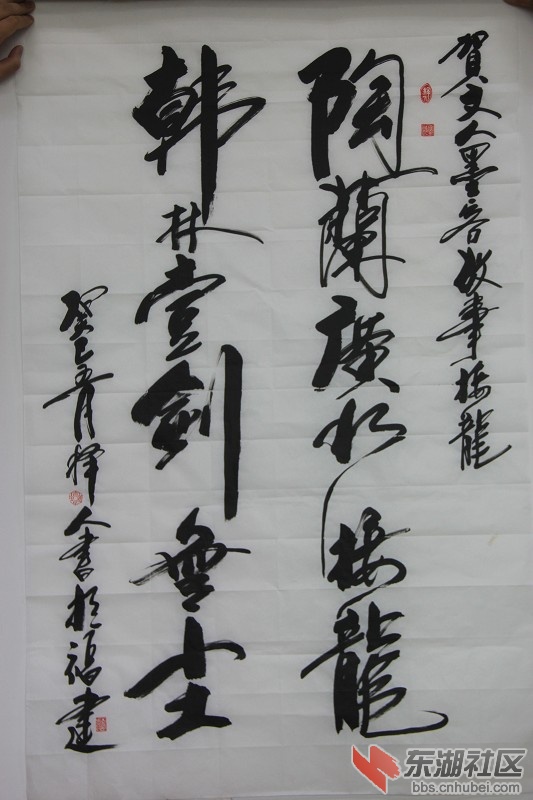 賀文人墨客故事接龍
陶蘭廣水接龍
韩林堂劍無尘
癸巳青月
人書於福建
东湖社区
bbs.cnhubei.com